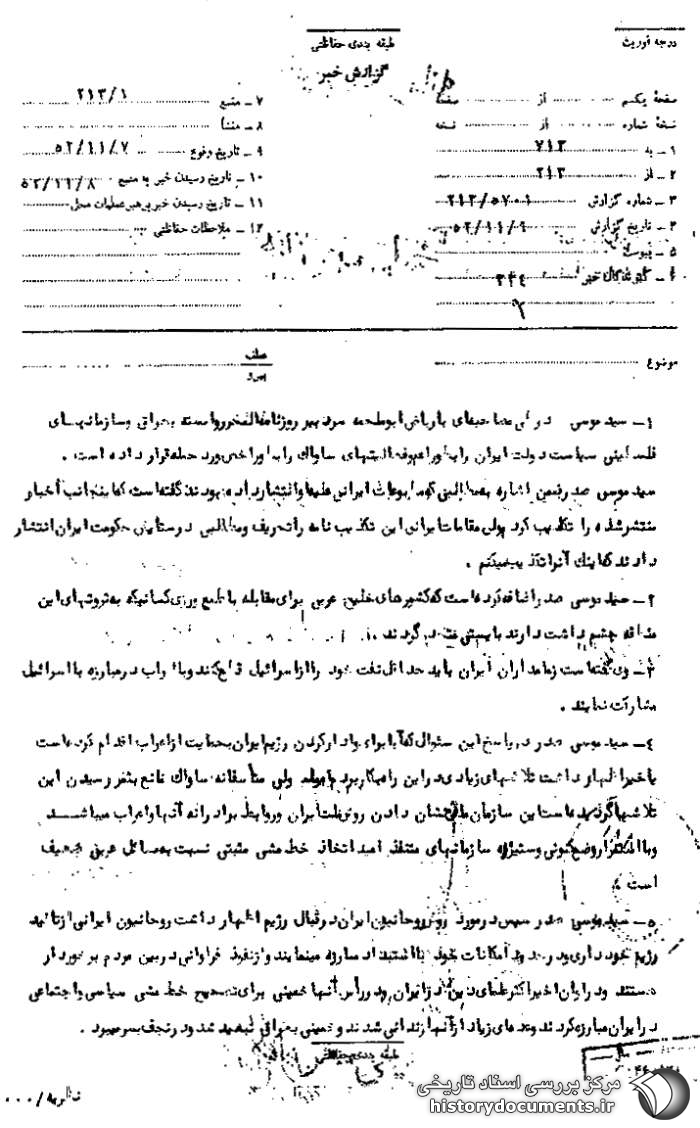 درجه فوریت
طبقه بندی حفاظتی
گزارش خبر
صفحه یکم از صفحه
نسخه شماره از نسخه
۱ـ به ۷۱۳
۲ـ از ۲۱۳
۳ـ شماره گزارش ۲۱۳/۵۷۰۱
۴ـ تاریخ گزارش ۵۲/۱۱/۹
۵ـ پیوست
۶ـ گیرندگان خبر ۳۴۴
۷ـ منبع ۲۱۳/۱
۸ـ منشأ
۹ـ تاریخ وقوع ۵۲/۱۱/۷
۱۰ـ تاریخ رسیدن خبر به منبع ۵۲/۱۱/۸
۱۱ـ تاریخ رسیدن خبر برهبر عملیات محل
۱۲ـ ملاحظات حفاظتی
موضوع
عطف
پیرو
۱ـ سید موسی در طی مصاحبه‌ای با ریاض ابوطحمه سردبیر روزنامه وابسته بعراق و سازمانهای
فلسطینی سیاست دولت ایران را بطور اعم و فعالیتهای ساواک را بطور اخص مورد حمله قرار داده است .
سید موسی صدر ضمن اشاره بمطالبی که مطبوعات ایرانی علیه او انتشار داده بودند گفته است که اینجانب اخبار
منتشر شده را تکذیب کردم ولی مقامات ایرانی این تکذیب نامه را تحریف و مطالبی در ستایش حکومت ایران انتشار
دادند که اینک آنرا تکذیب میکنم .
۲ـ سید موسی صدر اضافه کرده است که کشورهای خلیج عربی برای مقابله با طمع ورزی کسانیکه به ثروتهای این
منطقه چشم داشت دارند بایستی متحد گردند .
۳ـ وی گفته است زمامداران ایران باید حداقل نفت خود را از اسرائیل قطع کنند و با اعراب در مبارزه با اسرائیل
مشارکت نمایند .
۴ـ سید موسی صدر در پاسخ این سئوال که آیا برای وادار کردن رژیم ایران بحمایت از اعراب اقدام کرده است
یا خیر اظهار داشت تلاشهای زیادی در این راه بکار برده ولی متأسفانه ساواک مانع بثمر رسیدن این
تلاشها گردیده است این سازمان مانع نشان دادن روش ملت ایران و روابط برادرانه آنها و اعراب میباشد
و با استمرار وضع کنونی و ستیزه سازمانهای متنفذ امید اتخاذ خط مشی مثبتی نسبت به مسائل عربی ضعیف
است .
۵ـ سید موسی صدر سپس در مورد روش روحانیون ایران در قبال رژیم اظهار داشت روحانیون ایرانی از تائید
رژیم خودداری و در حدود امکانات خود با استبداد مبارزه مینمایند و از نفوذ فراوانی در بین مردم برخوردار
هستند و در این اخیر اکثر علمای دین در ایران و در رأس آنها خمینی برای تصحیح خط مشی سیاسی و اجتماعی
در ایران مبارزه کردند و عده‌ای زیاد از آنها زندانی شدند و خمینی بعراق تبعید شد و در نجف بسر میبرد .
طبقه بندی حفاظتی
نظریه / ۰۰۰
مرکز بررسی اسناد تاریخی
historydocuments.ir